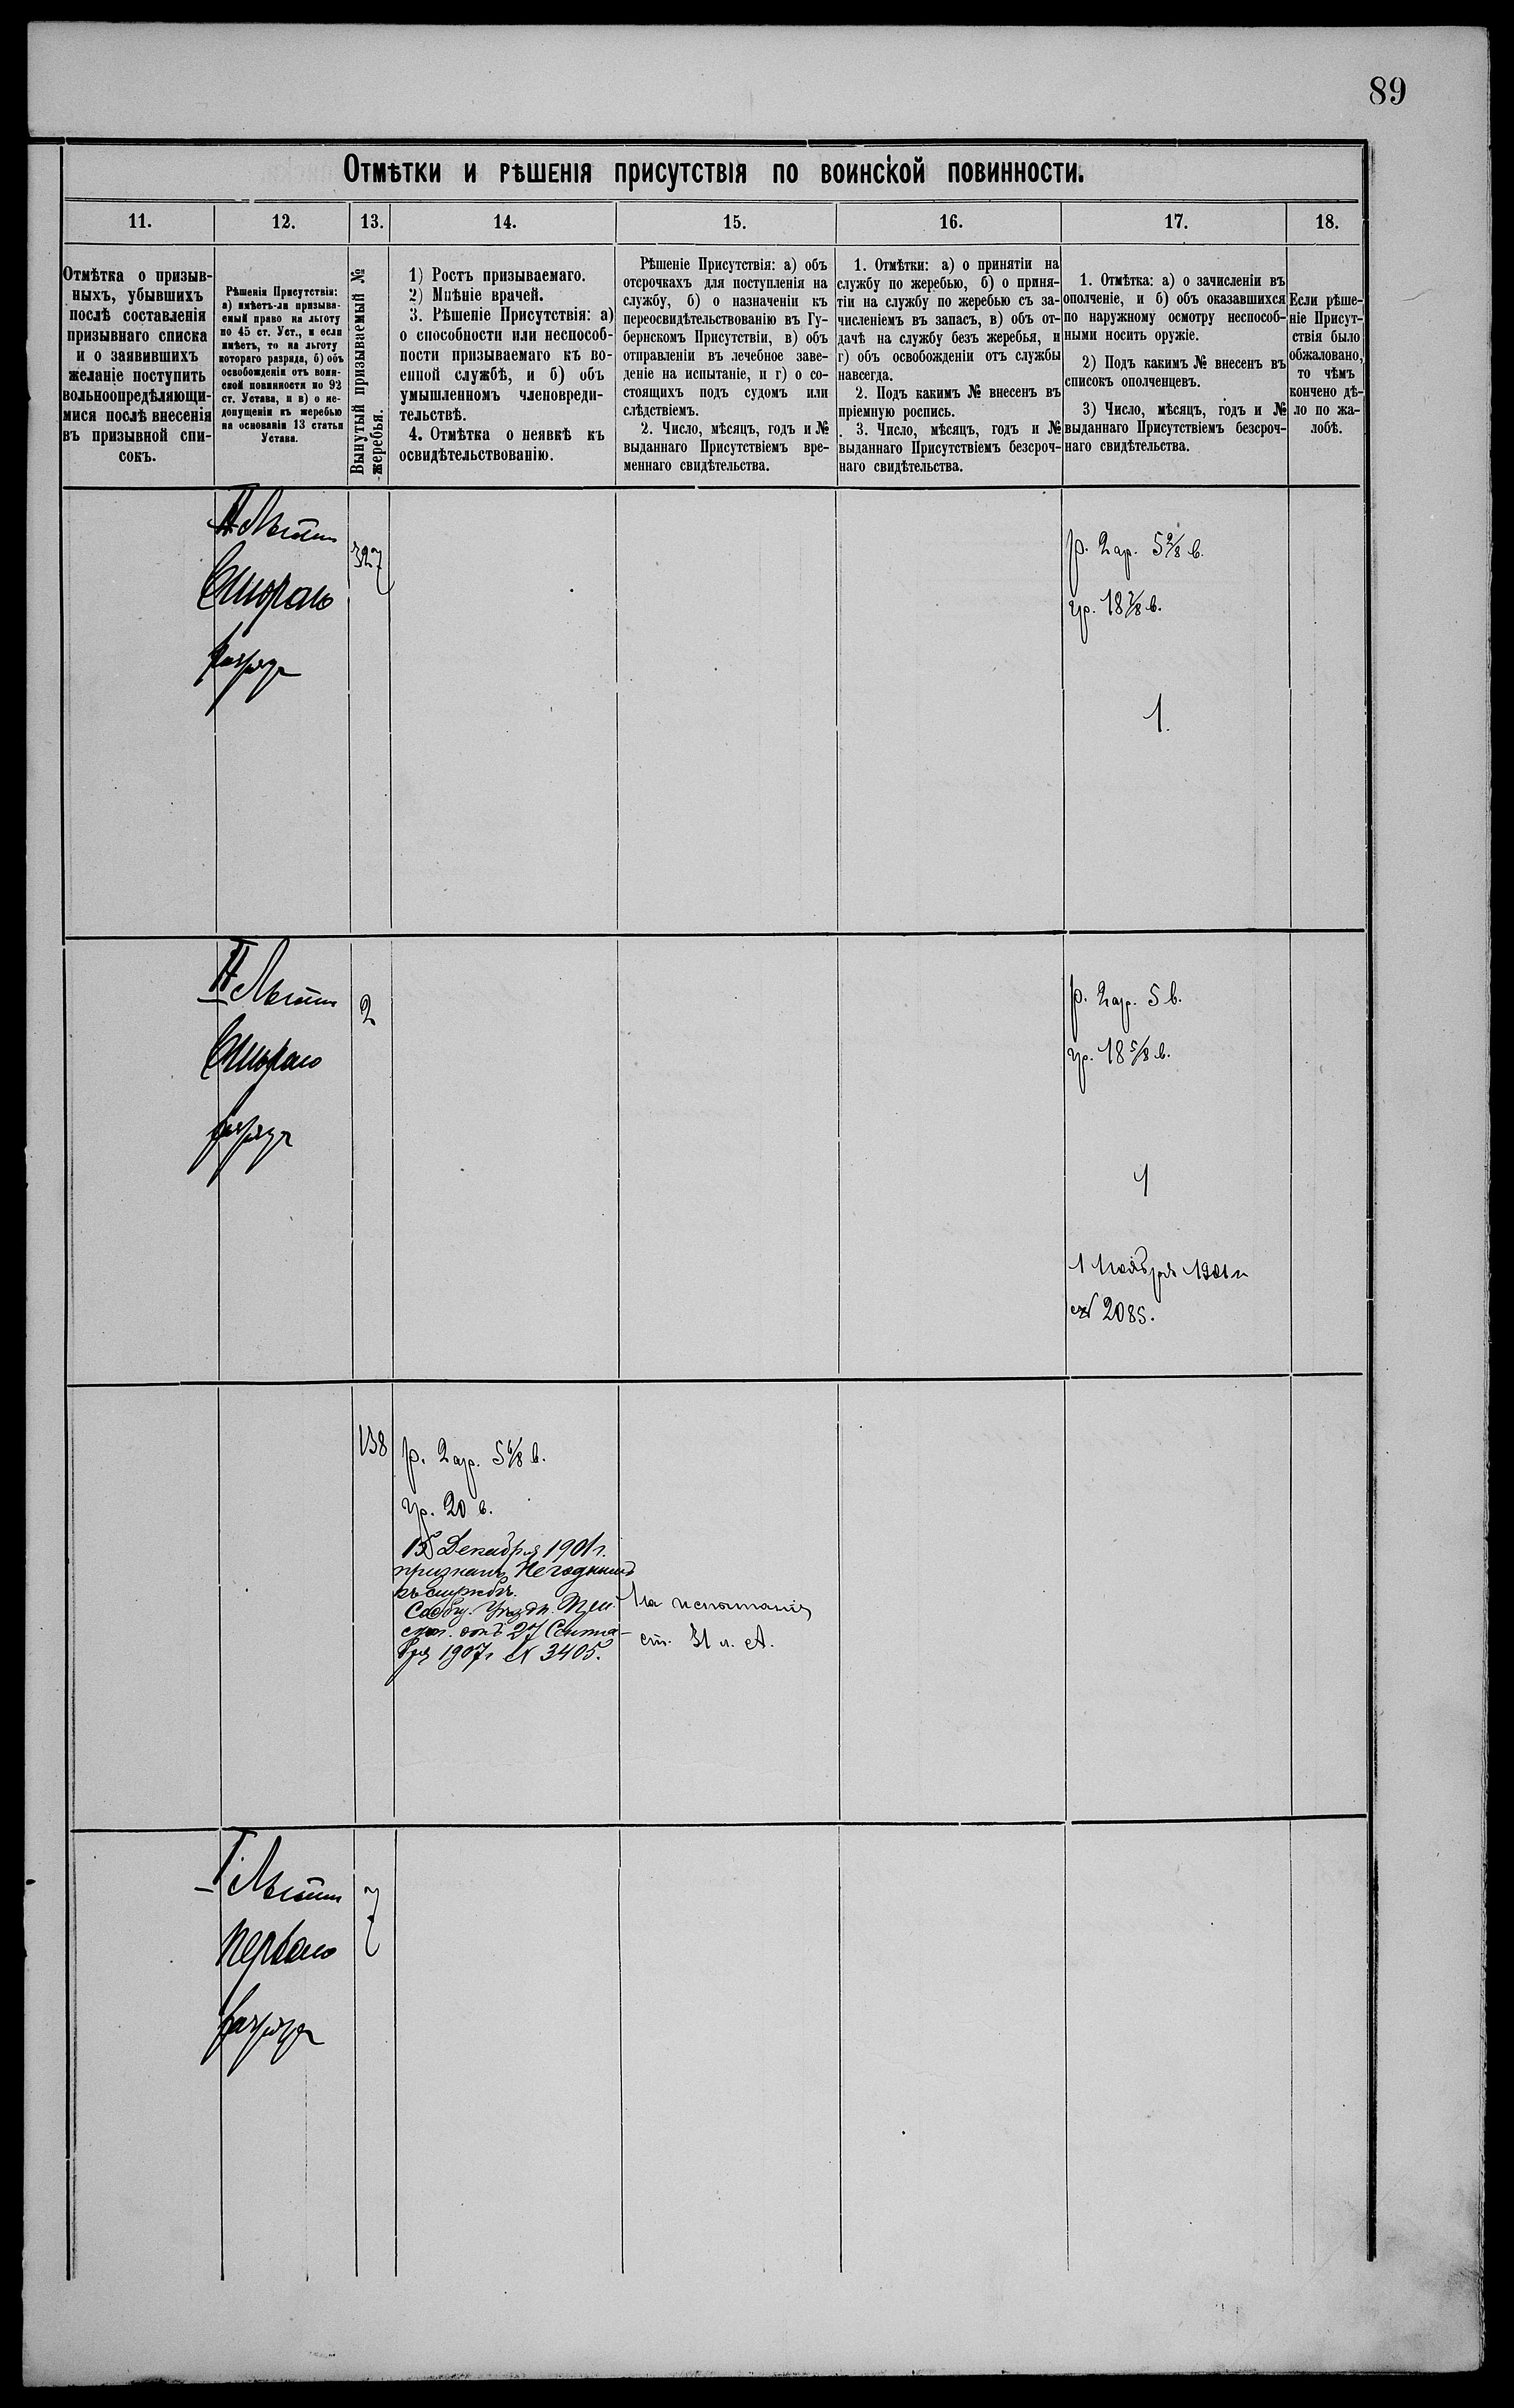 89
Отмѣтки и рѣшенія присутствія по воинской повинности.
11. 12. 13. 14. 15. 16. 17. 18.
Отмѣтка о призыв-
ныхъ, убывшихъ
послѣ составленія
призывнаго списка
и о заявившихъ
желаніе поступить
вольноопредѣляющи-
мися послѣ внесенія
въ призывной спи-
сокъ.
Рѣшенія Присутствія:
а) имѣетъ-ли призыва-
емый право на льготу
по 45 ст. Уст., и если
имѣетъ, то на льготу
котораго разряда, б) объ
освобожденіи отъ воин-
ской повинности по 92
ст. Устава, и в) о не-
допущеніи къ жеребью
на основаніи 13 статьи
Устава.
Вынутый призываемый №
жеребья.
1) Ростъ призываемаго.
2) Мнѣніе врачей.
3. Рѣшеніе Присутствія: а)
о способности или неспособ-
ности призываемаго къ во-
енной службѣ, и б) объ
умышленномъ членовреди-
тельствѣ.
4. Отмѣтка о неявкѣ къ
освидѣтельствованію.
Рѣшеніе Присутствія: а) объ
отсрочкахъ для поступленія на
службу, б) о назначеніи къ
переосвидѣтельствованію въ Гу-
бернскомъ Присутствіи, в) объ
отправленіи въ лечебное заве-
деніе на испытаніе, и г) о со-
стоящихъ подъ судомъ или
слѣдствіемъ.
2. Число, мѣсяцъ, годъ и №
выданнаго Присутствіемъ вре-
меннаго свидѣтельства.
1. Отмѣтки: а) о принятіи на
службу по жеребью, б) о приня-
тіи на службу по жеребью съ за-
численіемъ въ запасъ, в) объ от-
дачѣ на службу безъ жеребья, и
г) объ освобожденіи отъ службы
навсегда.
2. Подъ какимъ № внесенъ въ
пріемную роспись.
3. Число, мѣсяцъ, годъ и №
выданнаго Присутствіемъ безсроч-
наго свидѣтельства.
1. Отмѣтка: а) о зачисленіи въ
ополченіе, и б) объ оказавшихся
по наружному осмотру неспособ-
ными носить оружіе.
2) Подъ какимъ № внесенъ въ
списокъ ополченцевъ.
3) Число, мѣсяцъ, годъ и №
выданнаго Присутствіемъ безсроч-
наго свидѣтельства.
Если рѣше-
ніе Присут-
ствія было
обжаловано,
то чѣмъ
кончено дѣ-
ло по жа-
лобѣ.
II
Второго
разряда
327
р. 2 ар. 5 2/8 в.
гр. 18 7/8 в.
1.
II
Второго
разряда
2
р. 2 ар. 5 в.
гр. 18 5/8 в.
4
1 Ноября 1901 г
№ 2085.
138
р. 2 ар. 5 6/8 в.
гр. 20 в.
15 Декабря 1901 г.
признанъ Негоднымъ
къ службѣ.
отъ 27 Сентя-
бря 1907 г № 3405.
На испытаніе
ст. 31 л. А.
I
первого
разряда
7